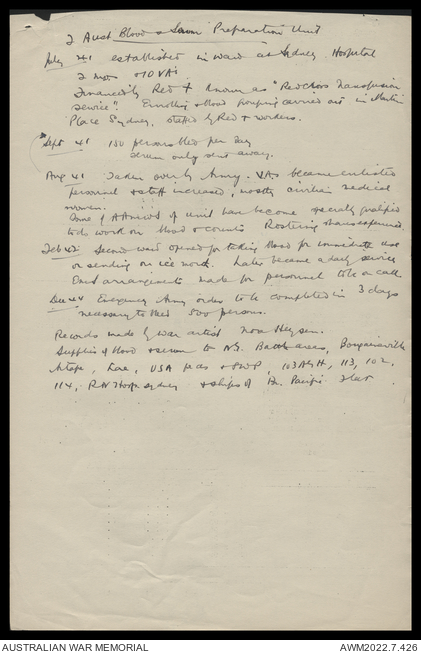 2 Aust Blood & Serum Preparation Unit
July 41 established in ward at Sydney Hospital
2 mos + 10 VAs
Financed by Red + known as "Red Cross Transfusion
Service". Enrolling & blood grouping carried out in Martin
Place Sydney, staffed by Red + workers.
Sept 41 150 persons bled per day
Serum only sent away.
Aug 41 Taken over by Army. VAs became enlisted
personnel & staff increased, mostly civilian medical
women.
Some of AAMWS of unit have become specially qualified
to do work on blood & counts Rostering
Feb 42 Second ward opened for taking blood for immediate use
or sending on ice north. Later became a daily service
and arrangements made for personnel to be on call
Dec 44 Emergency Army order to be completed in 3 days
necessary to bleed 800 persons.
Records made by war artist Nora Heysen.
Supplies of blood & serum to N.G. Battle areas, Bougainville
Aitape, Lae, USA 103 AGH, 113, 102,
114, RN Hosp Sydney & ships of Br. Pacific Fleet
AUSTRALIAN WAR MEMORIAL
AWM2022.7.426